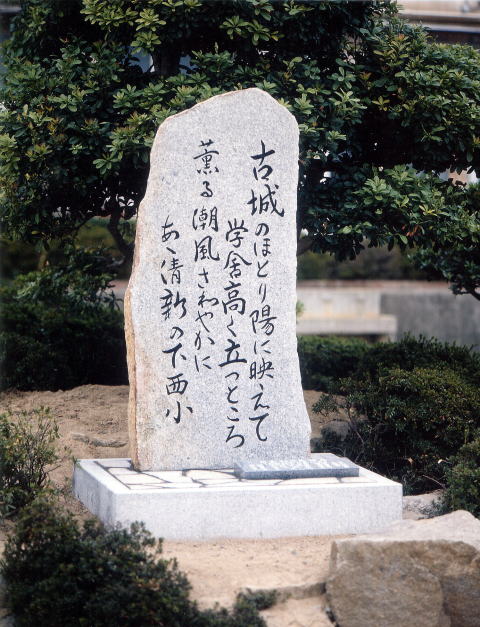 古城のほとり陽に映えて
学舎高く立つところ
薫る潮風さわやかに
あゝ清新の下西小